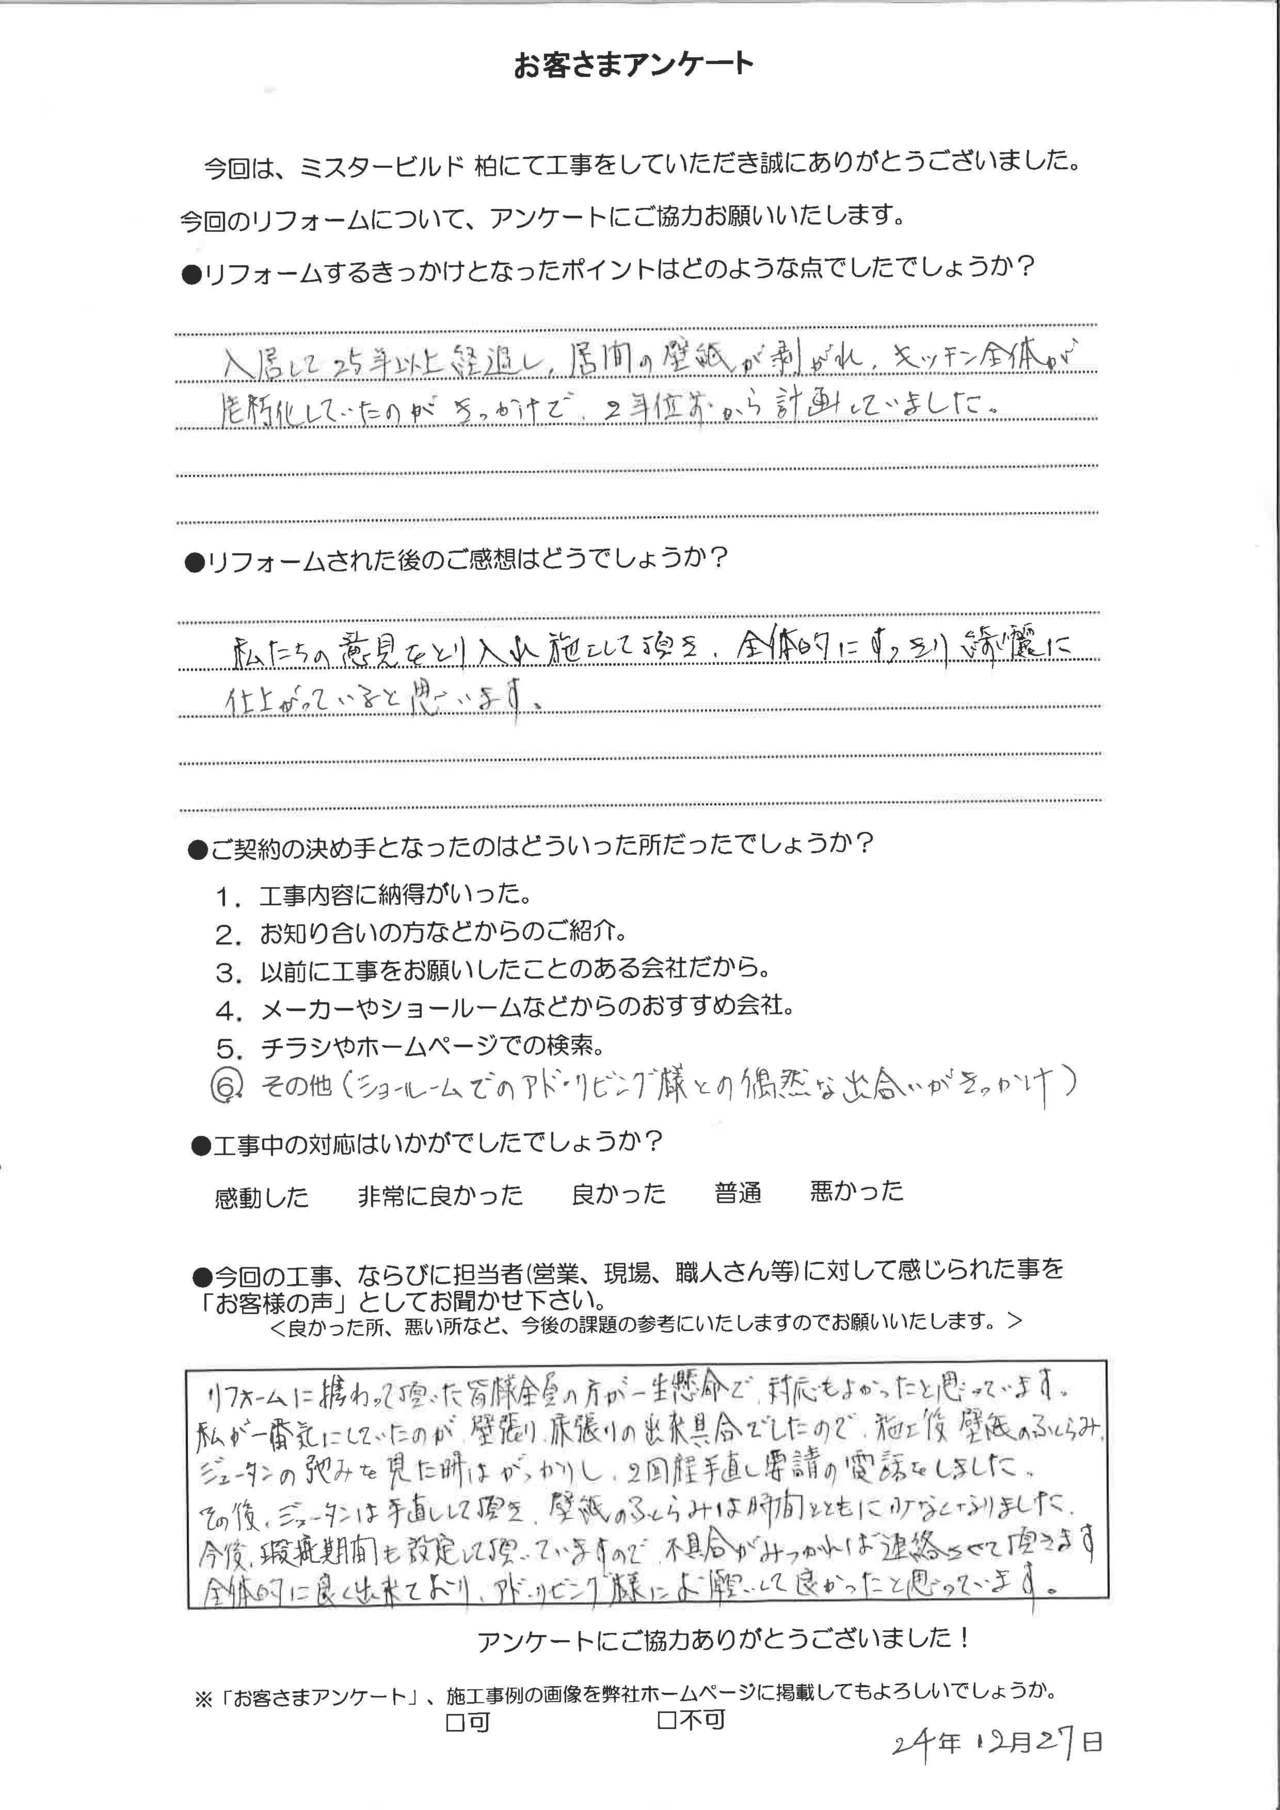 お客さまアンケート
今回は、ミスタービルド 柏にて工事をしていただき誠にありがとうございました。
今回のリフォームについて、アンケートにご協力お願いいたします。
●リフォームするきっかけとなったポイントはどのような点でしたでしょうか?
入居して25年以上経過し、居間の壁紙が剥がれ、キッチン全体が
老朽化していたのがきっかけで、2年位前から計画していました。
●リフォームされた後のご感想はどうでしょうか?
私たちの意見をとり入れ施工して頂き、全体的にすっきり綺麗に
仕上がっていると思います。
●ご契約の決め手となったのはどういった所だったでしょうか?
1. 工事内容に納得がいった。
2. お知り合いの方などからのご紹介。
3. 以前に工事をお願いしたことのある会社だから。
4. メーカーやショールームなどからのおすすめ会社。
5. チラシやホームページでの検索。
⑥ その他(ショールームでのアド・リビング様との偶然な出合いがきっかけ)
●工事中の対応はいかがでしたでしょうか?
感動した 非常に良かった 良かった 普通 悪かった
●今回の工事、ならびに担当者(営業、現場、職人さん等)に対して感じられた事を
「お客様の声」としてお聞かせ下さい。
<良かった所、悪い所など、今後の課題の参考にいたしますのでお願いいたします。>
リフォームに携わって頂いた皆様全員の方が一生懸命で、対応もよかったと思っています。
私が一番気にしていたのが、壁張り、床張りの出来具合でしたので、施工後、壁紙のふくらみ、
ジュータンの弛みを見た時はがっかりし、2回程手直し要請の電話をしました。
その後、ジュータンは手直しして頂き、壁紙のふくらみは時間とともに少なくなりました。
今後、瑕疵期間も設定して頂いていますので、不具合がみつかれば連絡させて頂きます
全体的に良く出来ており、アド・リビング様にお願いして良かったと思っています。
アンケートにご協力ありがとうございました!
※「お客さまアンケート」、施工事例の画像を弊社ホームページに掲載してもよろしいでしょうか。
□可 □不可
24年12月27日